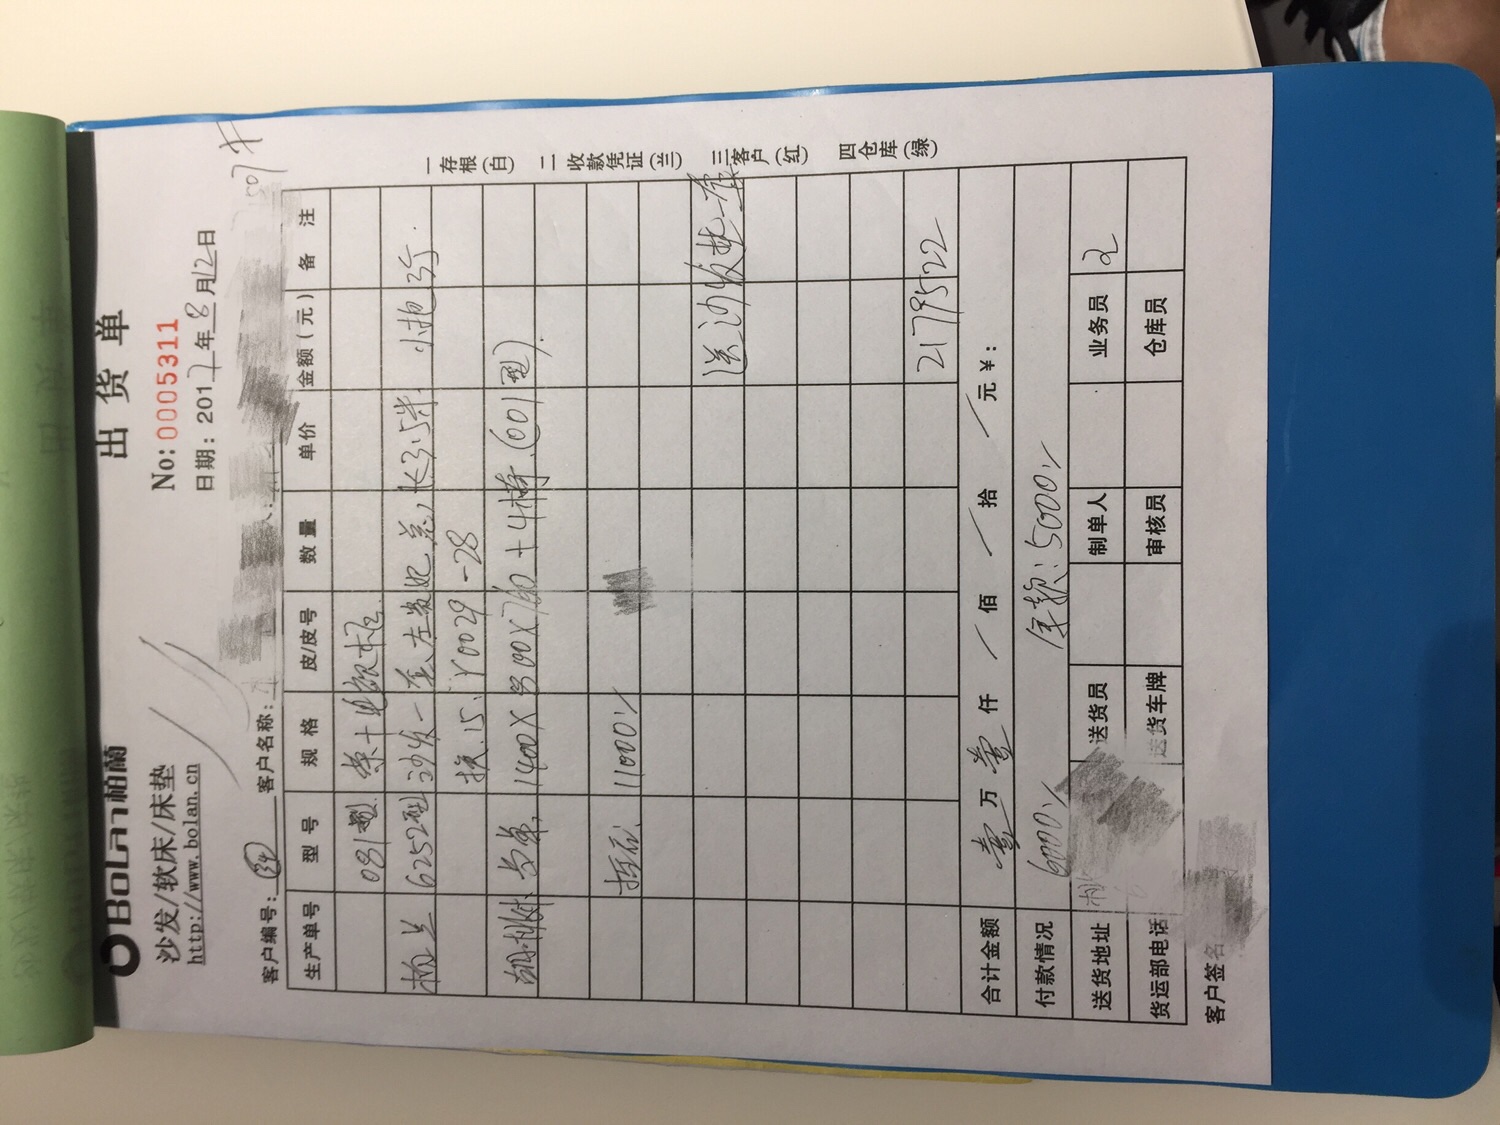 BoLan柏蘭
出货单
沙发/软床/床垫
http://www.bolan.cn
No:0005311
日期：2017年8月12日
客户编号：
客户名称：
生产单号 型号 规格 皮/皮号 数量 单价 金额（元） 备注
081型
柏兰 6252型 沙发一套 左贵妃 总长3.5米 小抱
Y0029-28
胡桃 1400X800X760+4椅(001型).
11000
送沙发垫一套
21795 22
合计金额 壹万壹仟/佰/拾/元¥：
付款情况 6000 余款：5000
送货地址 送货员 制单人 业务员
货运部电话 送货车牌 审核员 仓库员
客户签名
一存根(白) 二收款凭证(兰) 三客户(红) 四仓库(绿)